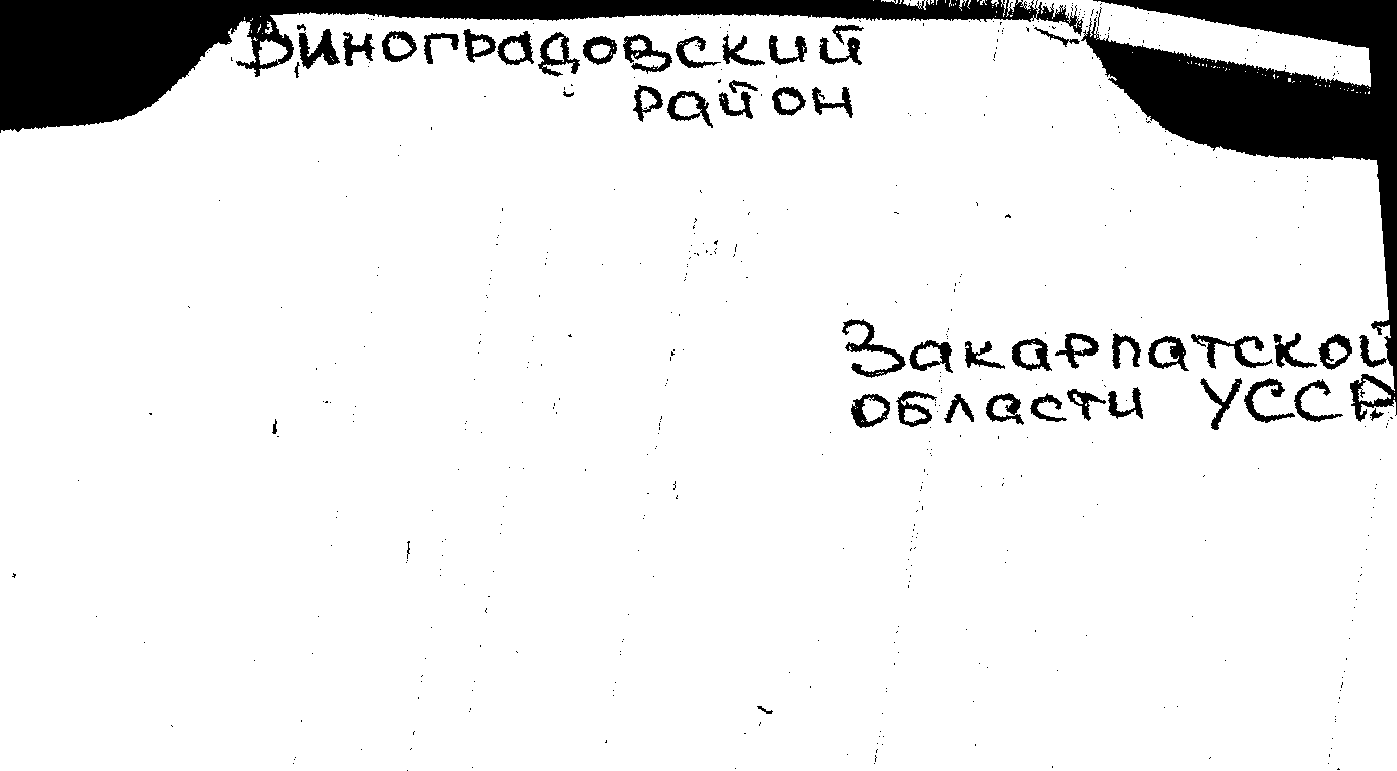 Виноградовский
район
Закарпатской
области УССР